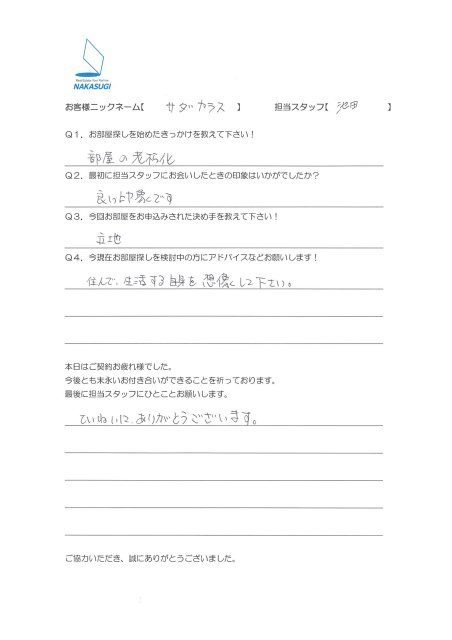 Real Estate Your Partner
NAKASUGI
お客様ニックネーム【 サダカラス 】 担当スタッフ【 池田 】
Q1．お部屋探しを始めたきっかけを教えて下さい！
部屋の老朽化
Q2．最初に担当スタッフにお会いしたときの印象はいかがでしたか？
良い印象です
Q3．今回お部屋をお申込みされた決め手を教えて下さい！
立地
Q4．今現在お部屋探しを検討中の方にアドバイスなどお願いします！
住んで、生活する自身を想像して下さい。
本日はご契約お疲れ様でした。
今後とも末永いお付き合いができることを祈っております。
最後に担当スタッフにひとことお願いします。
ていねいに、ありがとうございます。
ご協力いただき、誠にありがとうございました。